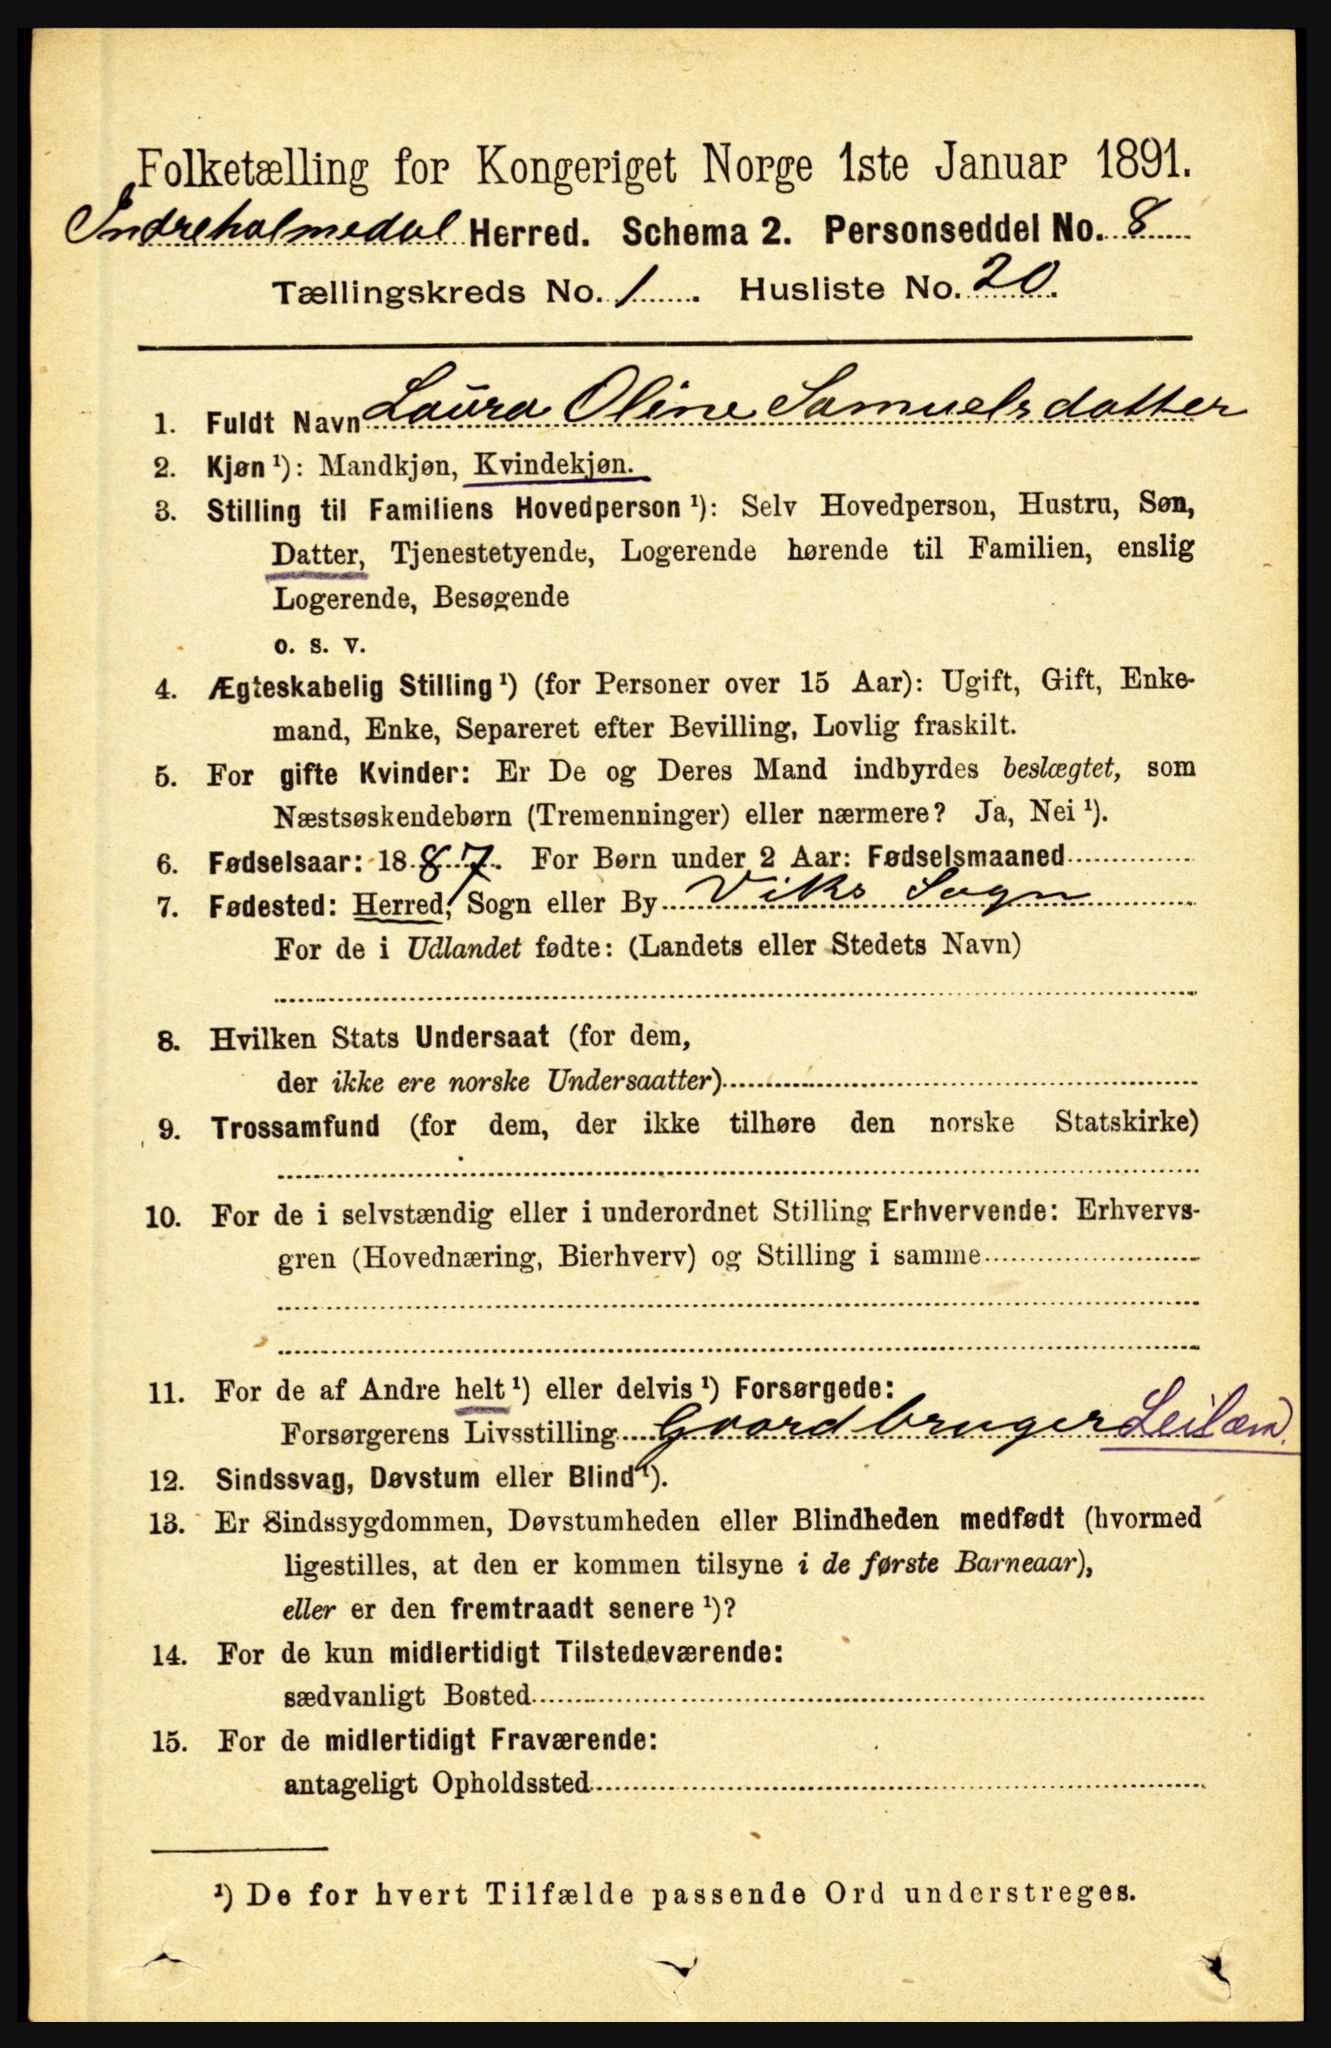 Folketælling for Kongeriget Norge 1ste Januar 1891.
Indreholmedal Herred. Schema 2. Personseddel No. 8
Tællingskreds No. 1. Husliste No. 20.
1. Fuldt Navn Laura Oline Samuelsdatter
2. Kjøn ¹): Mandkjøn, Kvindekjøn.
3. Stilling til Familiens Hovedperson ¹): Selv Hovedperson, Hustru, Søn,
Datter, Tjenestetyende, Logerende hørende til Familien, enslig
Logerende, Besøgende
o. s. v.
4. Ægteskabelig Stilling ¹) (for Personer over 15 Aar): Ugift, Gift, Enke-
mand, Enke, Separeret efter Bevilling, Lovlig fraskilt.
5. For gifte Kvinder: Er De og Deres Mand indbyrdes beslægtet, som
Næstsøskendebørn (Tremenninger) eller nærmere? Ja, Nei ¹).
6. Fødselsaar: 1887. For Børn under 2 Aar: Fødselsmaaned
7. Fødested: Herred, Sogn eller By Viks Sogn
For de i Udlandet fødte: (Landets eller Stedets Navn)
8. Hvilken Stats Undersaat (for dem,
der ikke ere norske Undersaatter)
9. Trossamfund (for dem, der ikke tilhøre den norske Statskirke)
10. For de i selvstændig eller i underordnet Stilling Erhvervende: Erhvervs-
gren (Hovednæring, Bierhverv) og Stilling i samme
11. For de af Andre helt ¹) eller delvis ¹) Forsørgede:
Forsørgerens Livsstilling Gaardbruger Leilæn.
12. Sindssvag, Døvstum eller Blind ¹).
13. Er Sindssygdommen, Døvstumheden eller Blindheden medfødt (hvormed
ligestilles, at den er kommen tilsyne i de første Barneaar),
eller er den fremtraadt senere ¹)?
14. For de kun midlertidigt Tilstedeværende:
sædvanligt Bosted
15. For de midlertidigt Fraværende:
antageligt Opholdssted
¹) De for hvert Tilfælde passende Ord understreges.